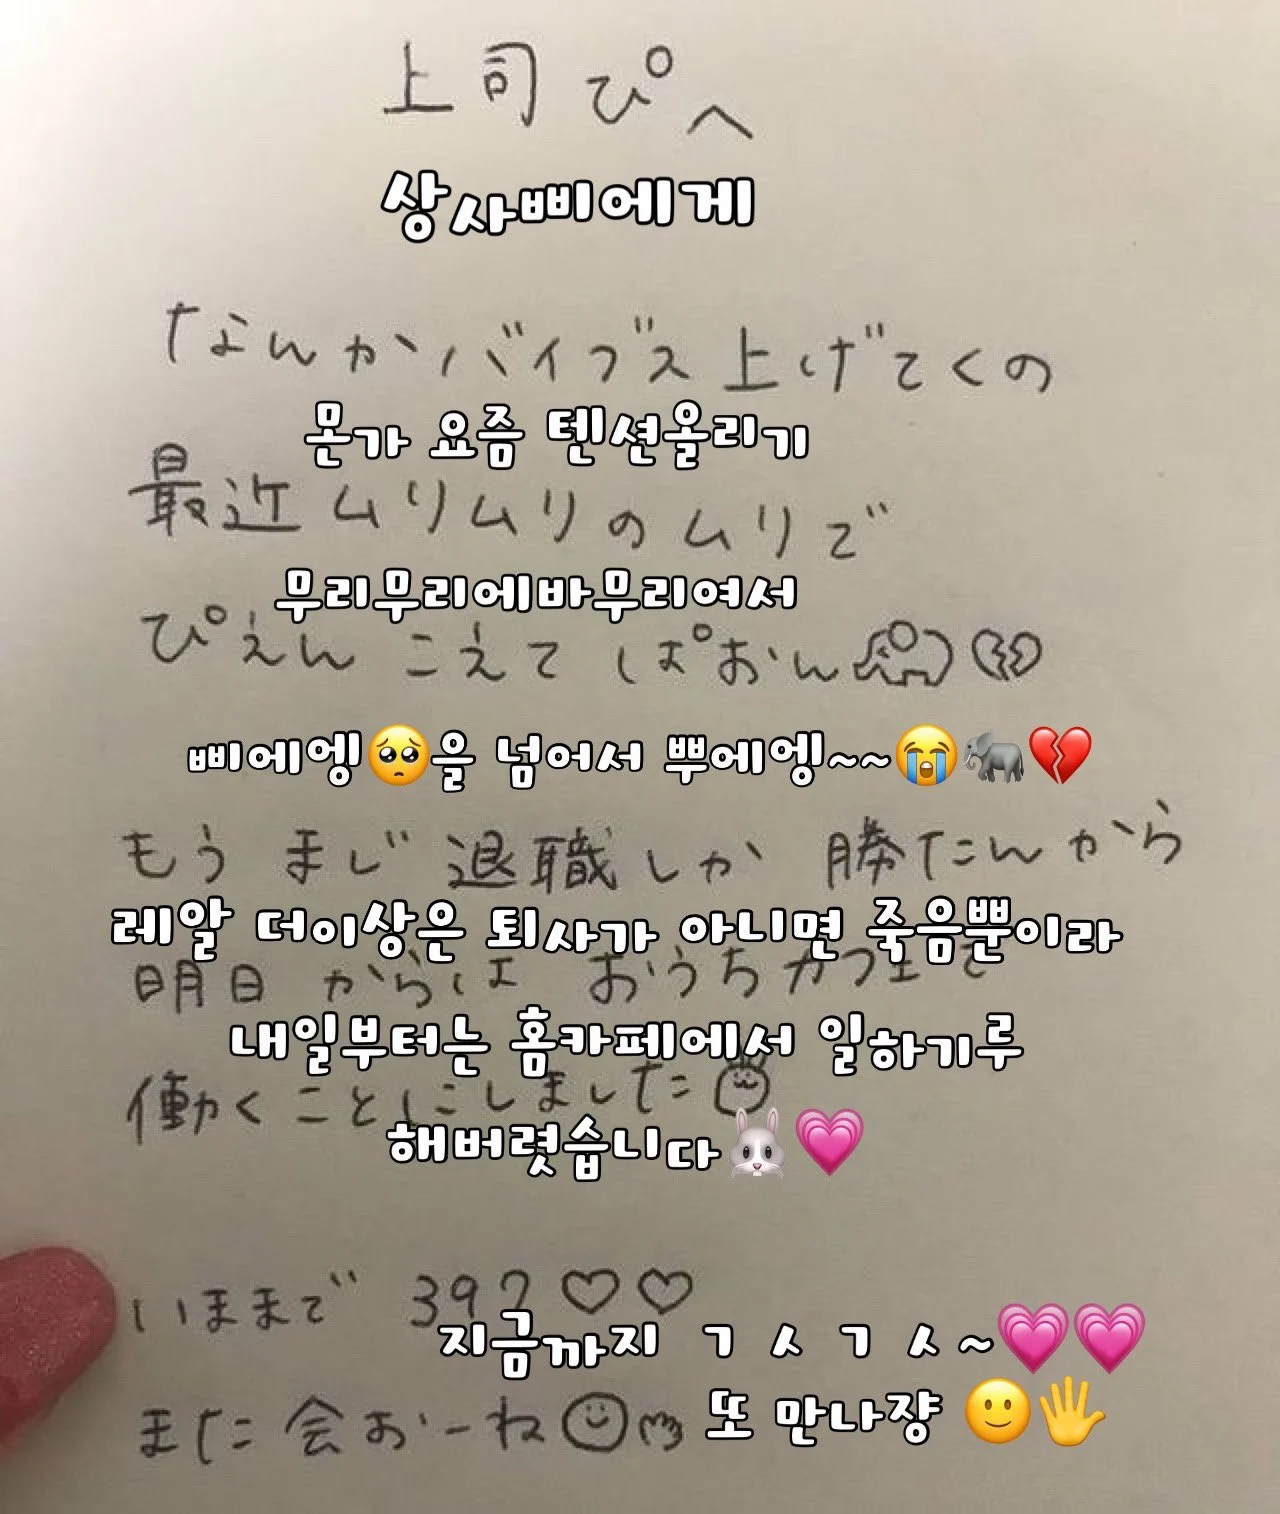 上司ぴへ
상사삐에게
なんかバイブス上げてくの
몬가 요즘 텐션올리기
最近ムリムリのムリで
무리무리에바무리여서
ぴえんこえてぱおん
삐에엥🥺을 넘어서 뿌에엥~~😭🐘💔
もうまじ退職しか勝たんから
레알 더이상은 퇴사가 아니면 죽음뿐이라
明日からは おうちカフェで
내일부터는 홈카페에서 일하기루
働くことにしました
해버렷습니다🐰💗
いままで 392♡♡
지금까지 ㄱㅅㄱㅅ~💗💗
また会おーね
또 만나쟝 🙂🖐